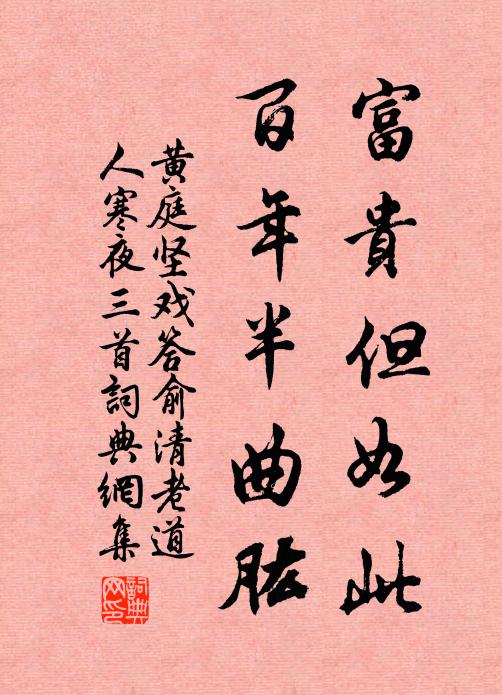 富貴但如此
百年半曲肱
黄庭坚戏答俞清老道
人寒夜三首詞典網集
詞典网印